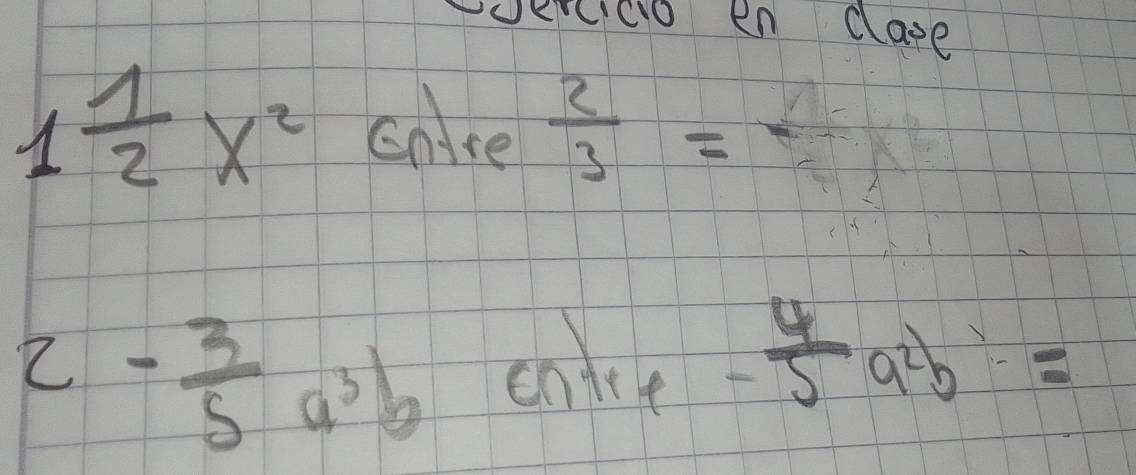 en clase
1 1/2 x² entre 2/3 =
2 - 3/5 a³b entre - 4/5 a²b =